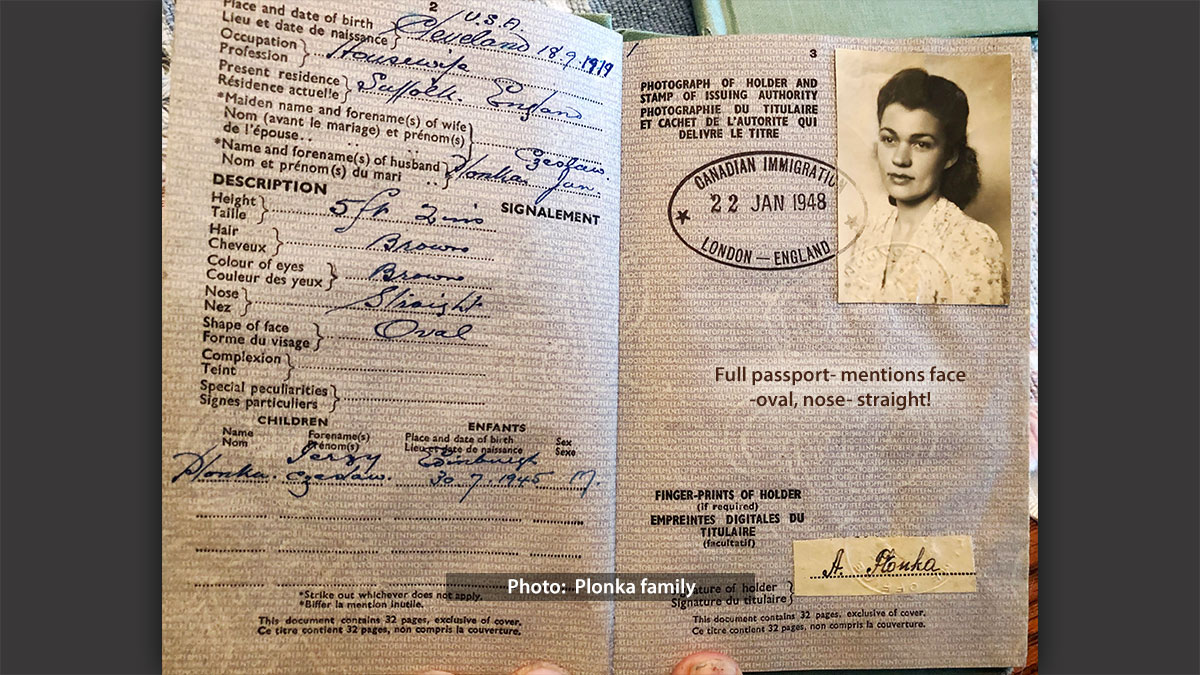 2
Place and date of birth
Lieu et date de naissance } U.S.A.
Cleveland 18.9.1919
Occupation
Profession } Housewife
Present residence
Résidence actuelle } Suffolk. England
*Maiden name and forename(s) of wife
Nom (avant le mariage) et prénom(s)
de l'épouse.. .. .. ..
*Name and forename(s) of husband
Nom et prénom(s) du mari .. } Czesław.
Płonka Jan.
DESCRIPTION SIGNALEMENT
Height
Taille } 5ft 2ins
Hair
Cheveux } Brown
Colour of eyes
Couleur des yeux } Brown
Nose
Nez } Straight
Shape of face
Forme du visage } Oval
Complexion
Teint }
Special peculiarities
Signes particuliers }
CHILDREN ENFANTS
Name Forename(s) Place and date of birth Sex
Nom Prénom(s) Lieu et date de naissance Sexe
Jerzy Edinburgh
Płonka. Czesław. 30.7.1945 M.
*Strike out whichever does not apply.
*Biffer la mention inutile.
This document contains 32 pages, exclusive of cover.
Ce titre contient 32 pages, non compris la couverture.
3
PHOTOGRAPH OF HOLDER AND
STAMP OF ISSUING AUTHORITY
PHOTOGRAPHIE DU TITULAIRE
ET CACHET DE L'AUTORITE QUI
DELIVRE LE TITRE
CANADIAN IMMIGRATION
22 JAN 1948
LONDON — ENGLAND
Full passport- mentions face
-oval, nose- straight!
FINGER-PRINTS OF HOLDER
(if required)
EMPREINTES DIGITALES DU
TITULAIRE
(facultatif)
A. Płonka
Signature of holder
Signature du titulaire }
This document contains 32 pages, exclusive of cover.
Ce titre contient 32 pages, non compris la couverture.
Photo: Plonka family